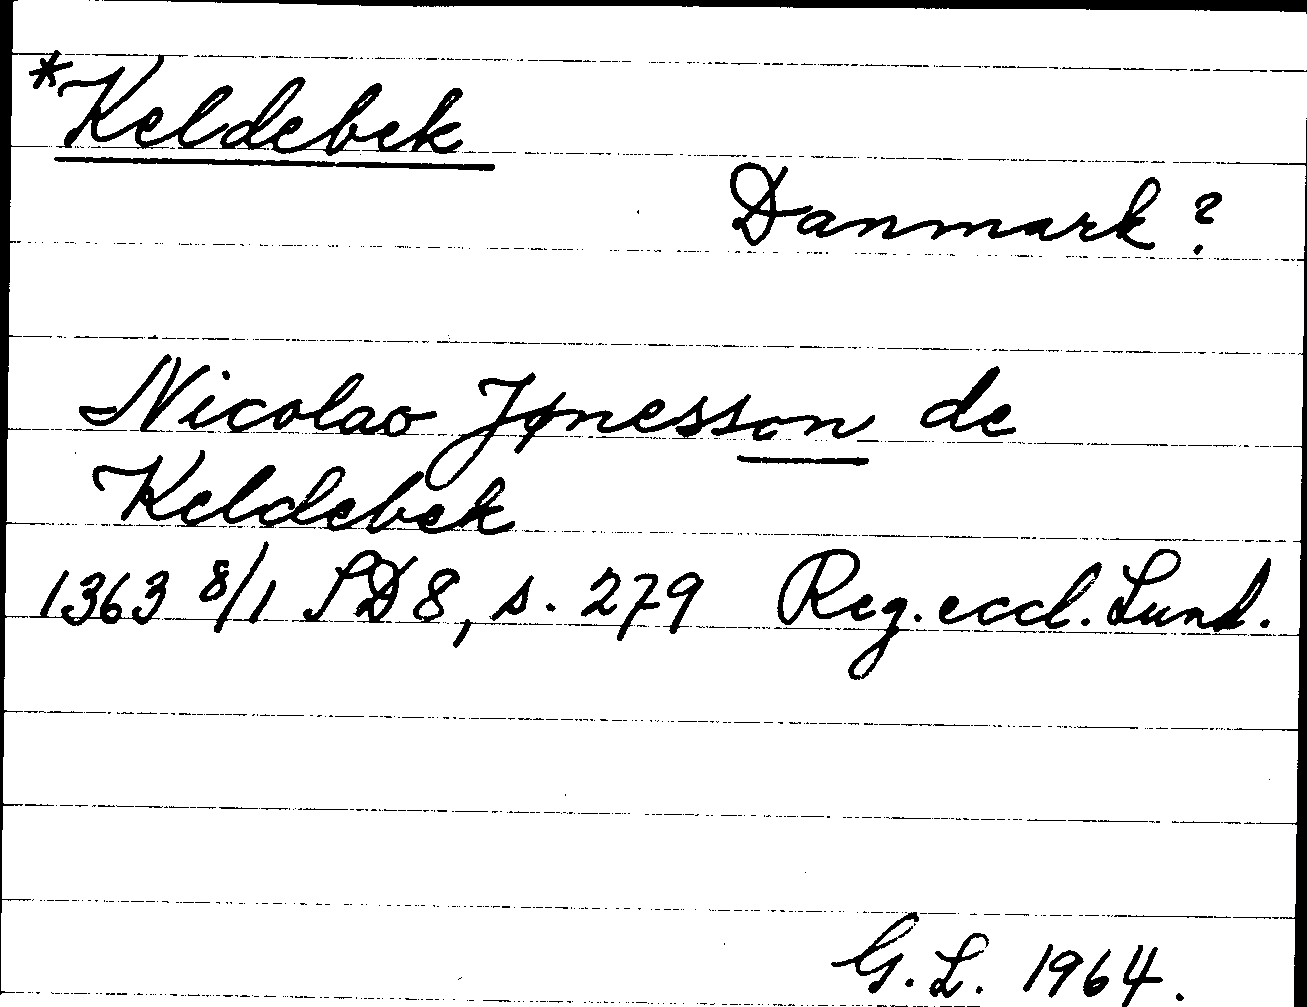 *Keldebek
Danmark?
Nicolao Jønesson de
Keldebek
1363 8/1 SD8, s. 279 Reg. eccl. Lund.
G.L. 1964.